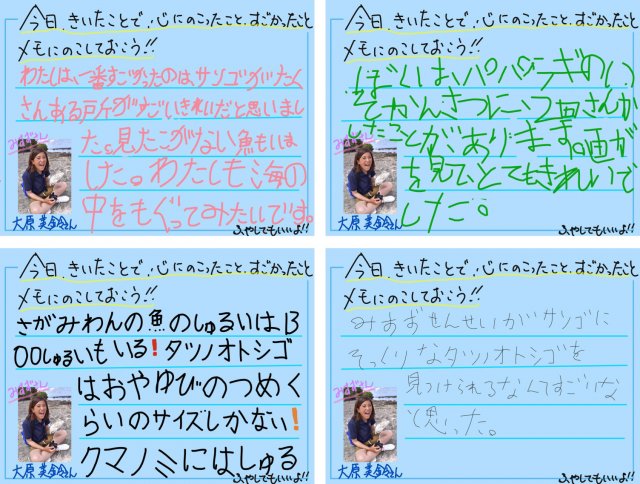 今日、きいたことで、心にのこったこと、すごかったこと
メモにのこしておこう!!
わたしは、一番すごかったのは、サンゴがたく
さんある所がすごいきれいだと思いまし
た。見たことがない魚もいま
した。わたしも海の
中をもぐってみたいです。
大原 さん
ふやしてもいいよ!!
今日、きいたことで、心にのこったこと、すごかったこと
メモにのこしておこう!!
ぼくは、パパラギのい
そかんさつに、2回さんか
したことがあります。画が
を見て、とてもきれいで
した。
大原 さん
ふやしてもいいよ!!
今日、きいたことで、心にのこったこと、すごかったこと
メモにのこしておこう!!
さがみわんの魚のしゅるいは13
00しゅるいもいる!タツノオトシゴ
はおやゆびのつめく
らいのサイズしかない!
クマノミにはしゅる
大原 さん
ふやしてもいいよ!!
今日、きいたことで、心にのこったこと、すごかったこと
メモにのこしておこう!!
みすずせんせいがサンゴに
そっくりなタツノオトシゴを
見つけられるなんてすごいな
と思った。
大原 さん
ふやしてもいいよ!!